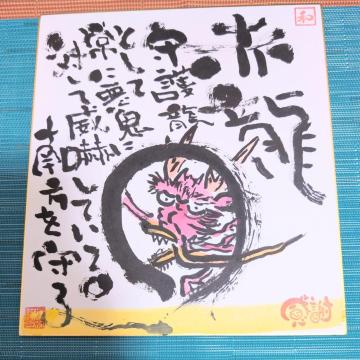 赤龍
守護龍
として
常に悪鬼に
対して威嚇していて。
南方を守る
和
感謝